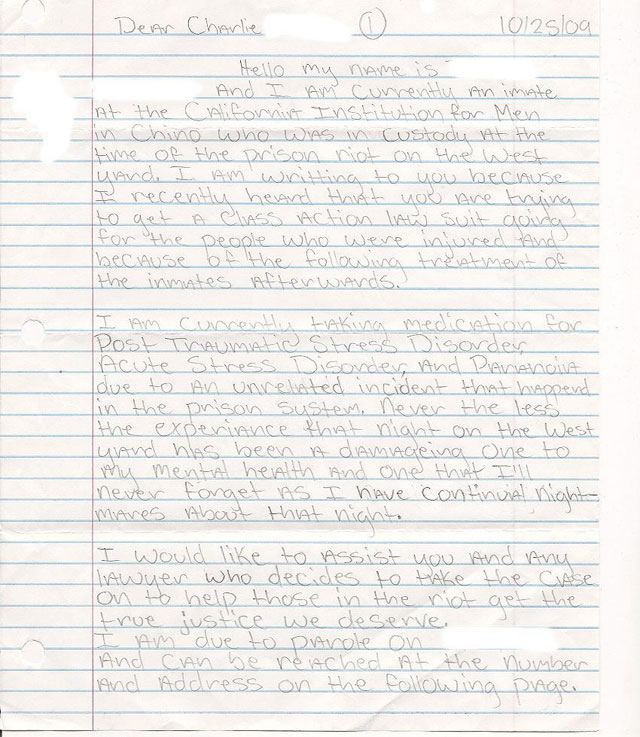 Dear Charlie ① 10/25/09
Hello my name is
And I Am Currently An imate
At the California Institution for Men
in Chino who was in custody At the
time of the prison riot on the West
yard. I Am writting to you because
I recently heard that you are trying
to get A Class Action law suit going
for the people who were injured And
because of the following treatment of
the inmates Afterwards.
I Am currently taking medication for
Post Traumatic Stress Disorder,
Acute Stress Disorder, And Paranoia
due to An unrelated incident that happend
in the prison system. Never the less
the experiance that night on the West
yard has been A damageing one to
my mental health And one that I'll
never forget As I have continual night-
mares About that night.
I would like to Assist you And Any
lawyer who decides to take the case
on to help those in the riot get the
true justice we deserve.
I Am due to parole on
And can be reached At the number
And Address on the following page.